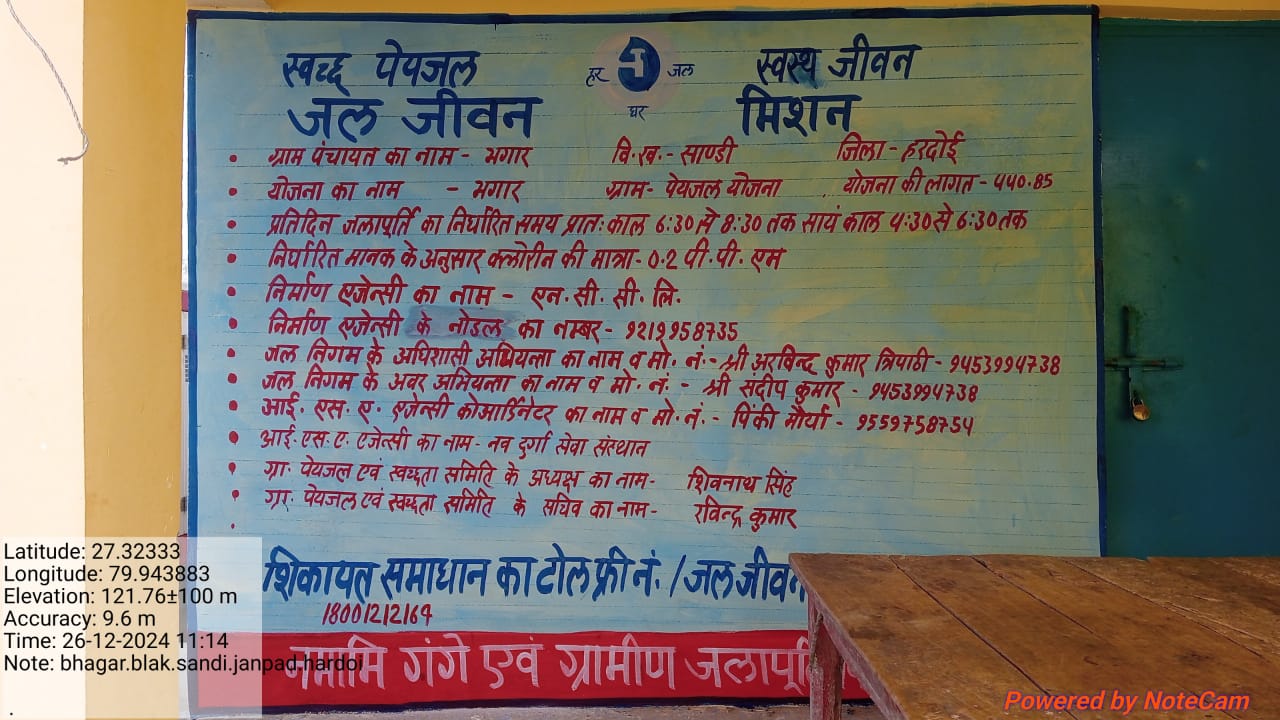 स्वच्छ पेयजल हर जल स्वस्थ जीवन
घर
जल जीवन मिशन
• ग्राम पंचायत का नाम - भगार वि.ख.- साण्डी जिला - हरदोई
• योजना का नाम - भगार ग्राम- पेयजल योजना योजना की लागत - ५५०.85
• प्रतिदिन जलापूर्ति का निर्धारित समय प्रातः काल 6:30 से 8:30 तक सायं काल 4:30 से 6:30 तक
• निर्धारित मानक के अनुसार क्लोरीन की मात्रा- 0.2 पी.पी.एम
• निर्माण एजेन्सी का नाम - एन.सी.सी.लि.
• निर्माण एजेन्सी के नोडल का नम्बर- 9219958735
• जल निगम के अधिशासी अभियन्ता का नाम व मो. नं.- श्री अरविन्द कुमार त्रिपाठी - 9453994738
• जल निगम के अवर अभियन्ता का नाम व मो. नं. - श्री संदीप कुमार - 9453994738
• आई. एस. ए. एजेन्सी कोआर्डिनेटर का नाम व मो. नं. - पिंकी मौर्या - 9559758754
• आई.एस.ए. एजेन्सी का नाम- नव दुर्गा सेवा संस्थान
• ग्रा. पेयजल एवं स्वच्छता समिति के अध्यक्ष का नाम- शिवनाथ सिंह
• ग्रा. पेयजल एवं स्वच्छता समिति के सचिव का नाम- रविन्द्र कुमार
शिकायत समाधान का टोल फ्री नं. / जल जीवन
18001212164
नमामि गंगे एवं ग्रामीण जलापूर्ति
Latitude: 27.32333
Longitude: 79.943883
Elevation: 121.76±100 m
Accuracy: 9.6 m
Time: 26-12-2024 11:14
Note: bhagar.blak.sandi.janpad.hardoi
Powered by NoteCam